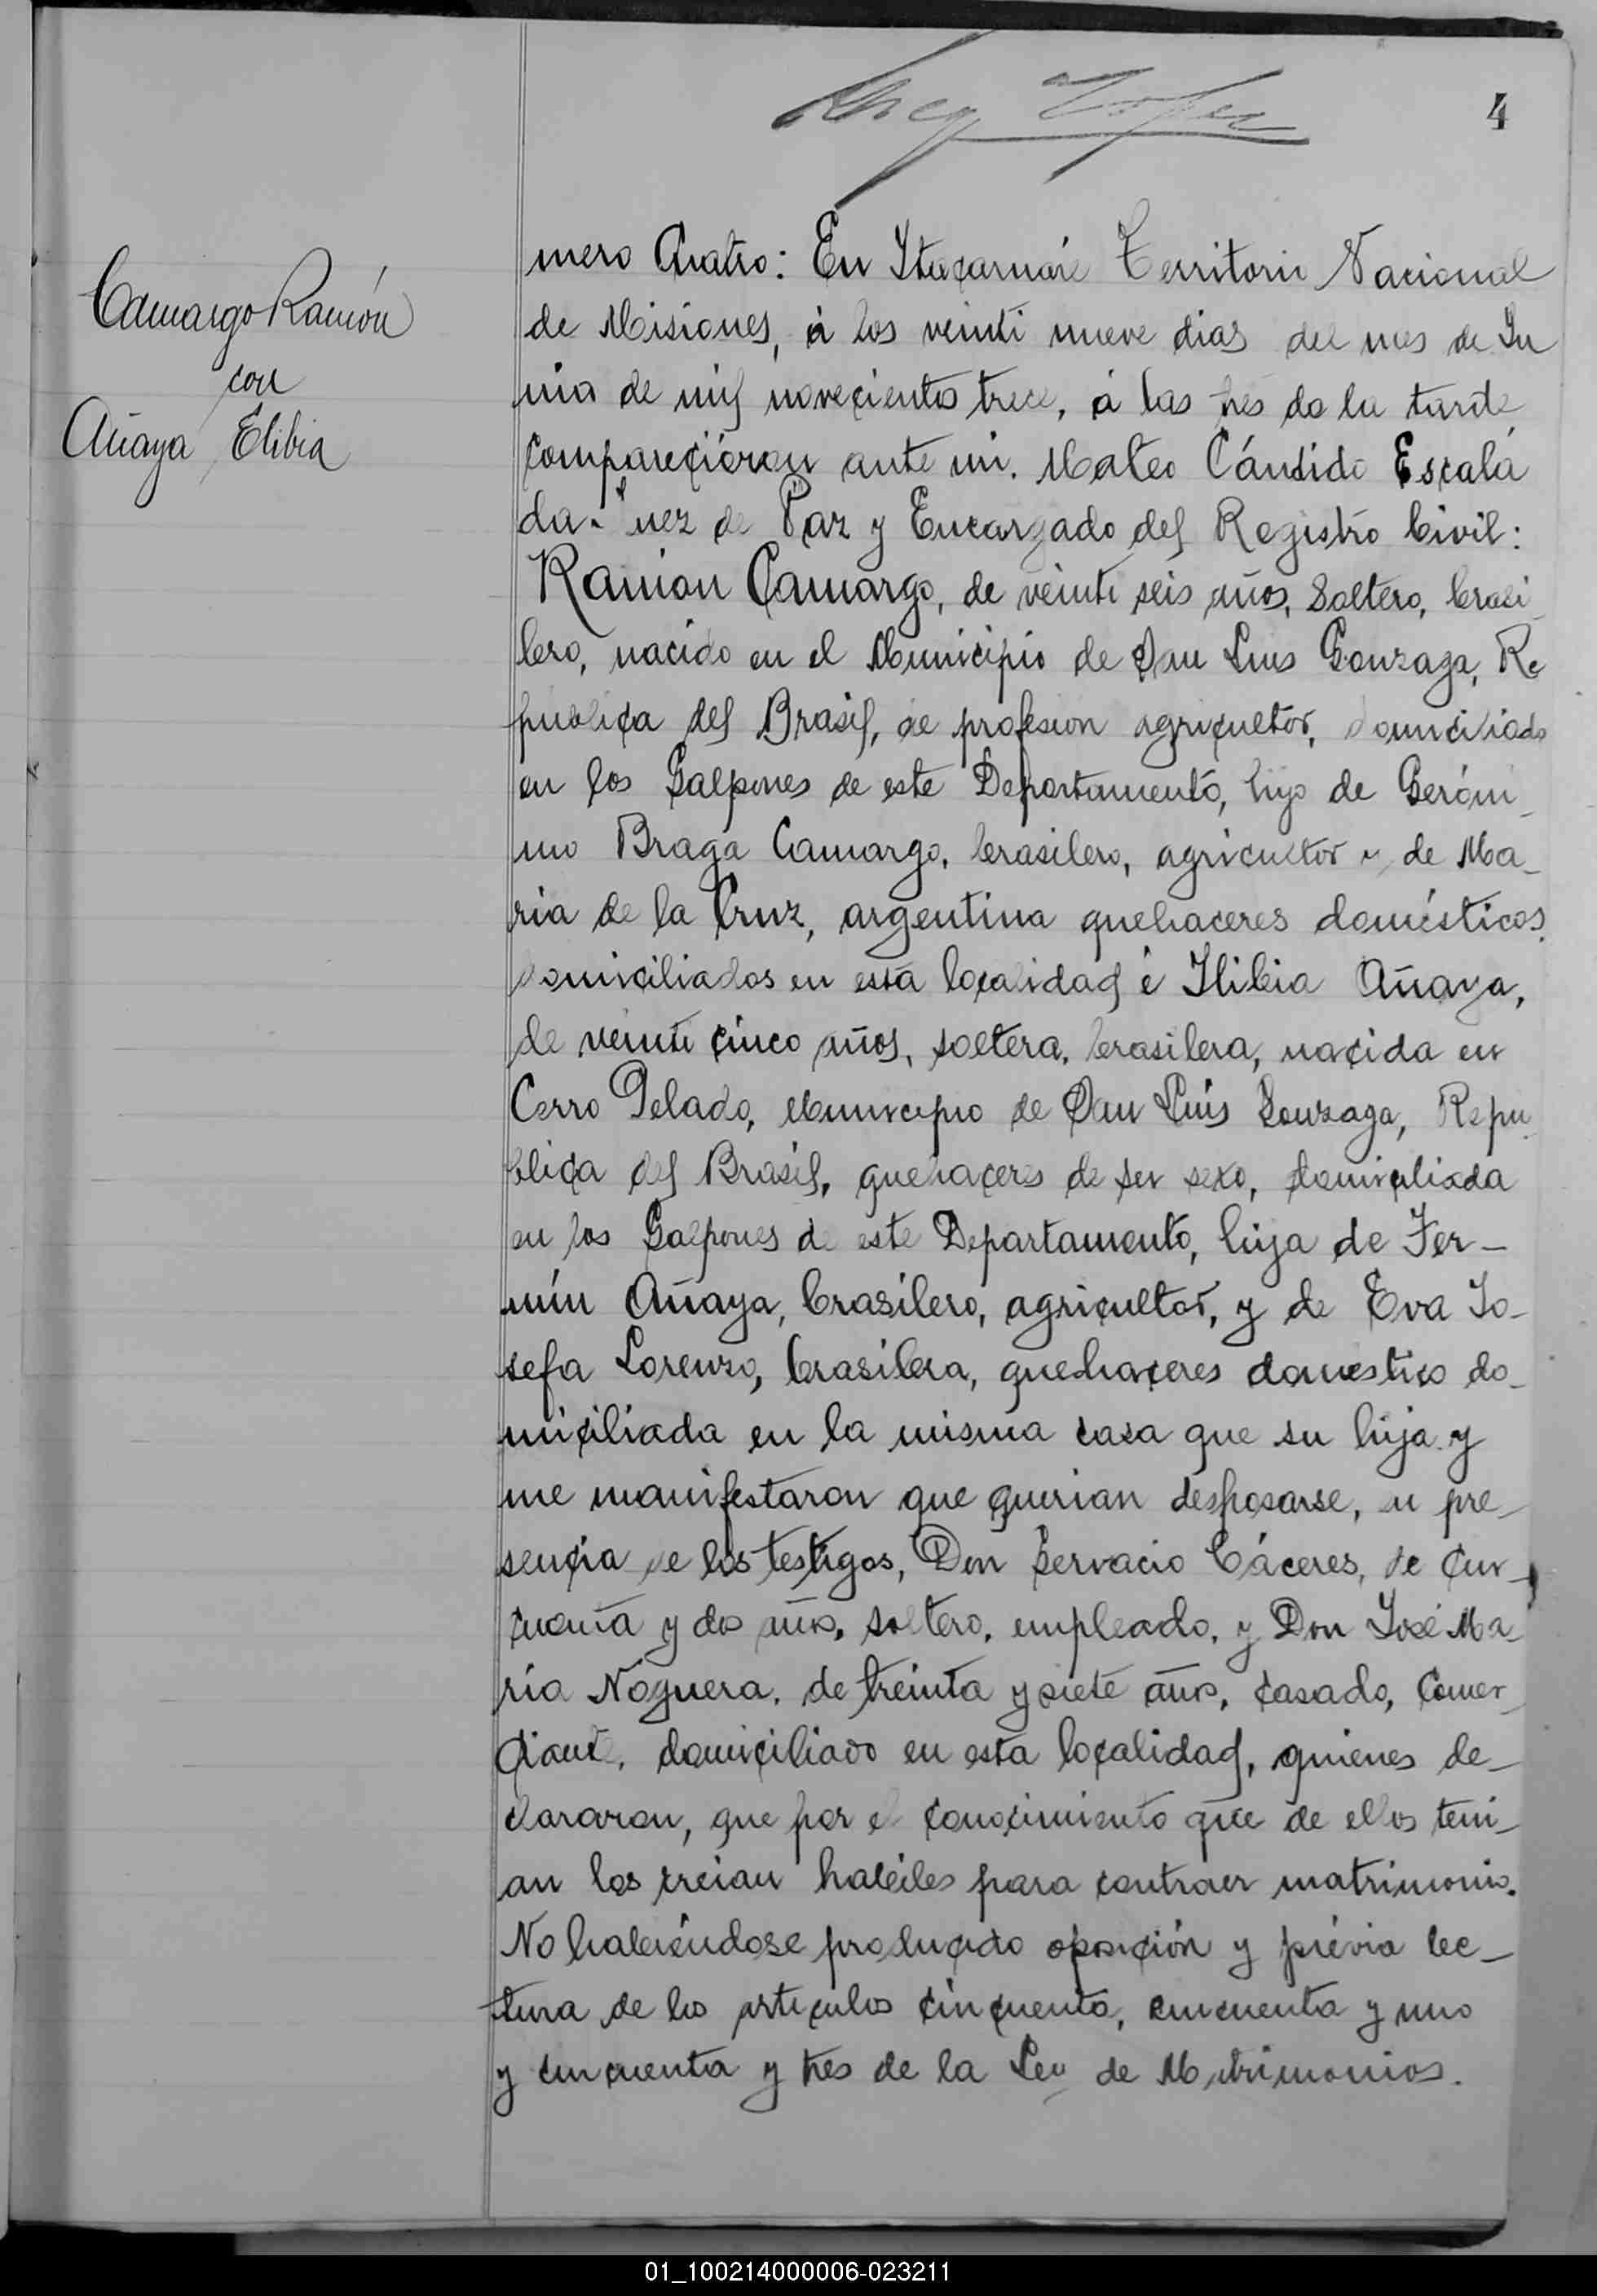 4
Camargo Ramón
con
Añaya Elibia
mero Cuatro: En Itacaruaré Territorio Nacional
de Misiones, á los veinti nueve dias del mes de Ju
nio de mil novecientos trece, á las tres de la tarde
comparecieron ante mi. Mateo Cándido Escala
da. Juez de Paz y Encargado del Registro Civil:
Ramón Camargo, de veinti seis años, Soltero, brasi
lero, nacido en el Municipio de San Luis Gonzaga, Re
publica del Brasil, de profesion agricultor, domiciliado
en los Galpones de este Departamento, hijo de Geróni_
mo Braga Camargo, brasilero, agricultor y de Ma_
ria de la Cruz, argentina quehaceres domésticos,
domiciliados en esta localidad é Ilibia Añaya,
de veinti cinco años, soltera, brasilera, nacida en
Cerro Pelado, Municipio de San Luis Gonzaga, Repu_
blica del Brasil, quehaceres de su sexo, domiciliada
en los Galpones de este Departamento, hija de Fer_
mín Añaya, brasilero, agricultor, y de Eva Jo_
sefa Lorenzo, brasilera, quehaceres domestico do_
miciliada en la misma casa que su hija y
me manifestaron que querian desposarse, en pre_
sencia de los testigos, Don Servacio Cáceres, de cin_
cuenta y dos años, soltero, empleado, y Don José Ma_
ría Noguera, de treinta y siete años, casado, Comer_
ciante, domiciliado en esta localidad, quienes de_
clararon, que por el conocimiento que de ellos teni_
an los creian habiles para contraer matrimonio.
No habiéndose producido oposición y prévia lec_
tura de los articulos cincuenta, cincuenta y uno
y cincuenta y tres de la Ley de Matrimonios.
01_100214000006-023211